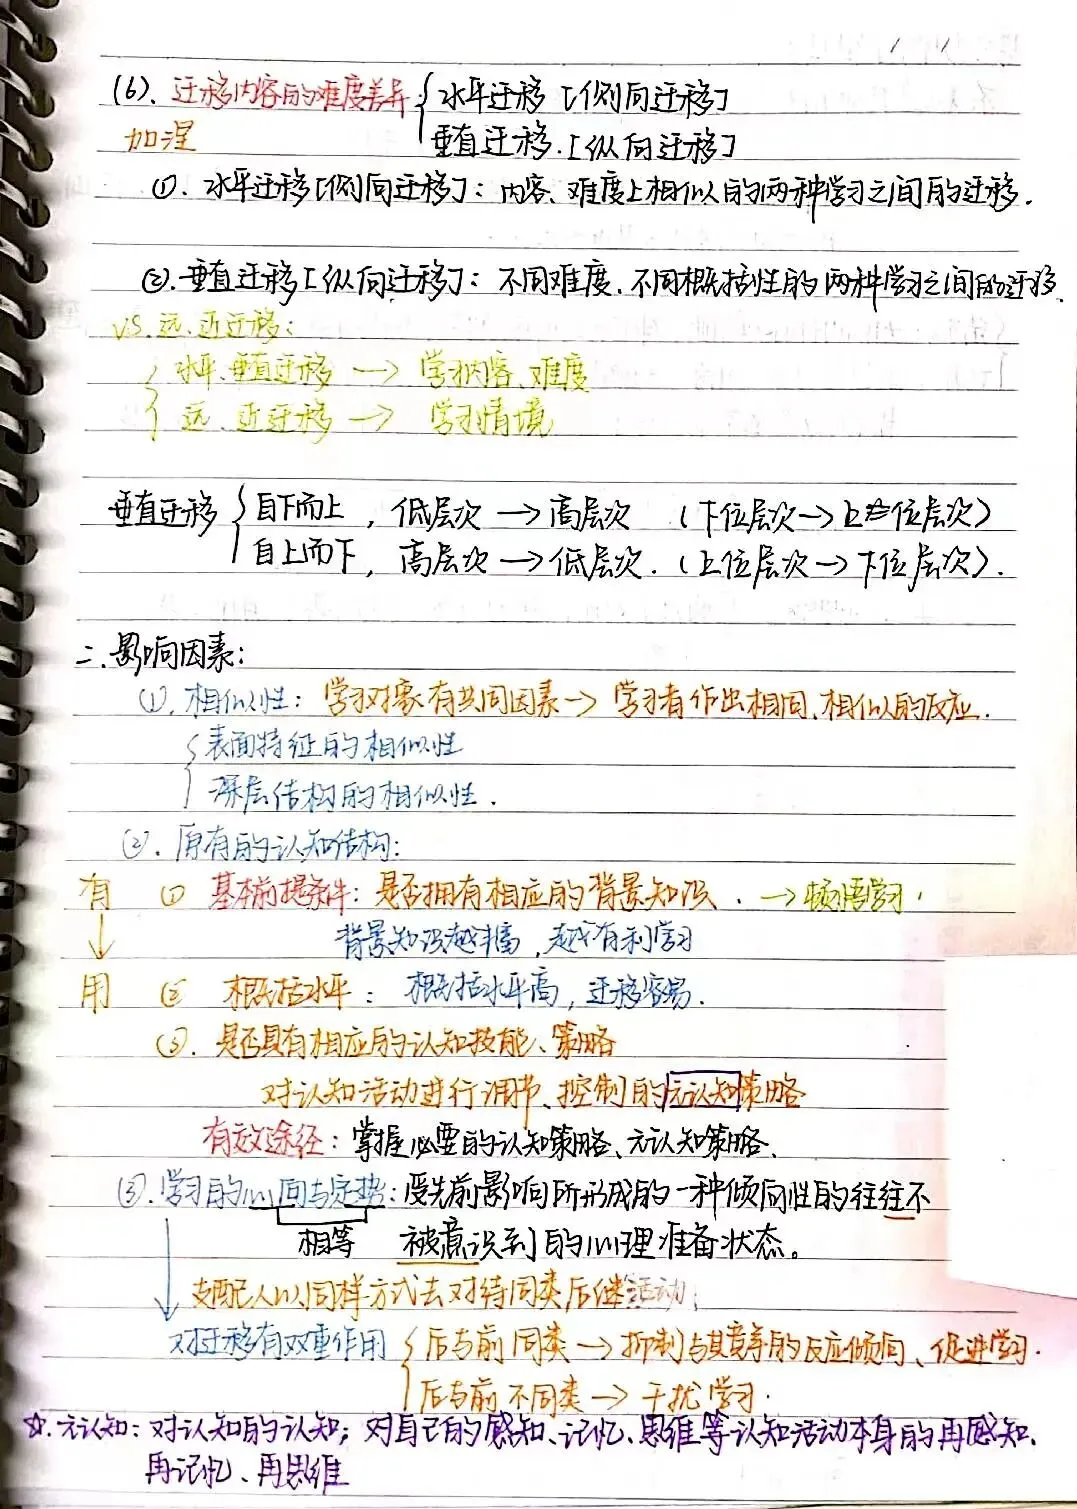 (6). 迁移内容的难度差异 { 水平迁移 [侧向迁移]
加涅 垂直迁移. [纵向迁移]
①. 水平迁移[侧向迁移]: 内容、难度上相似的两种学习之间的迁移.
②. 垂直迁移[纵向迁移]: 不同难度. 不同概括性的两种学习之间的迁移.
VS. 远、近迁移:
{ 水平、垂直迁移 → 学习内容、难度
远、近迁移 → 学习情境
垂直迁移 { 自下而上, 低层次 → 高层次 (下位层次→上位层次)
自上而下, 高层次 → 低层次. (上位层次→下位层次).
二. 影响因素:
①. 相似性: 学习对象有共同因素 → 学习者作出相同、相似的反应.
{ 表面特征的相似性
深层结构的相似性.
②. 原有的认知结构:
有 ① 基本前提条件: 是否拥有相应的背景知识. → 顿悟学习.
↓ 背景知识越丰富, 越有利学习
用 ② 概括水平: 概括水平高, 迁移容易.
③. 是否具有相应的认知技能、策略
对认知活动进行调节、控制的元认知策略
有效途径: 掌握必要的认知策略、元认知策略.
③. 学习的心向与定势: 受先前影响所形成的一种倾向性的往往不
相等 被意识到的心理准备状态。
支配人以同样方式去对待同类后继活动;
对迁移有双重作用 { 后与前同类 → 抑制与其竞争的反应倾向、促进学习.
后与前不同类 → 干扰学习.
☆. 元认知: 对认知的认知; 对自己的感知、记忆、思维等认知活动本身的再感知、
再记忆、再思维